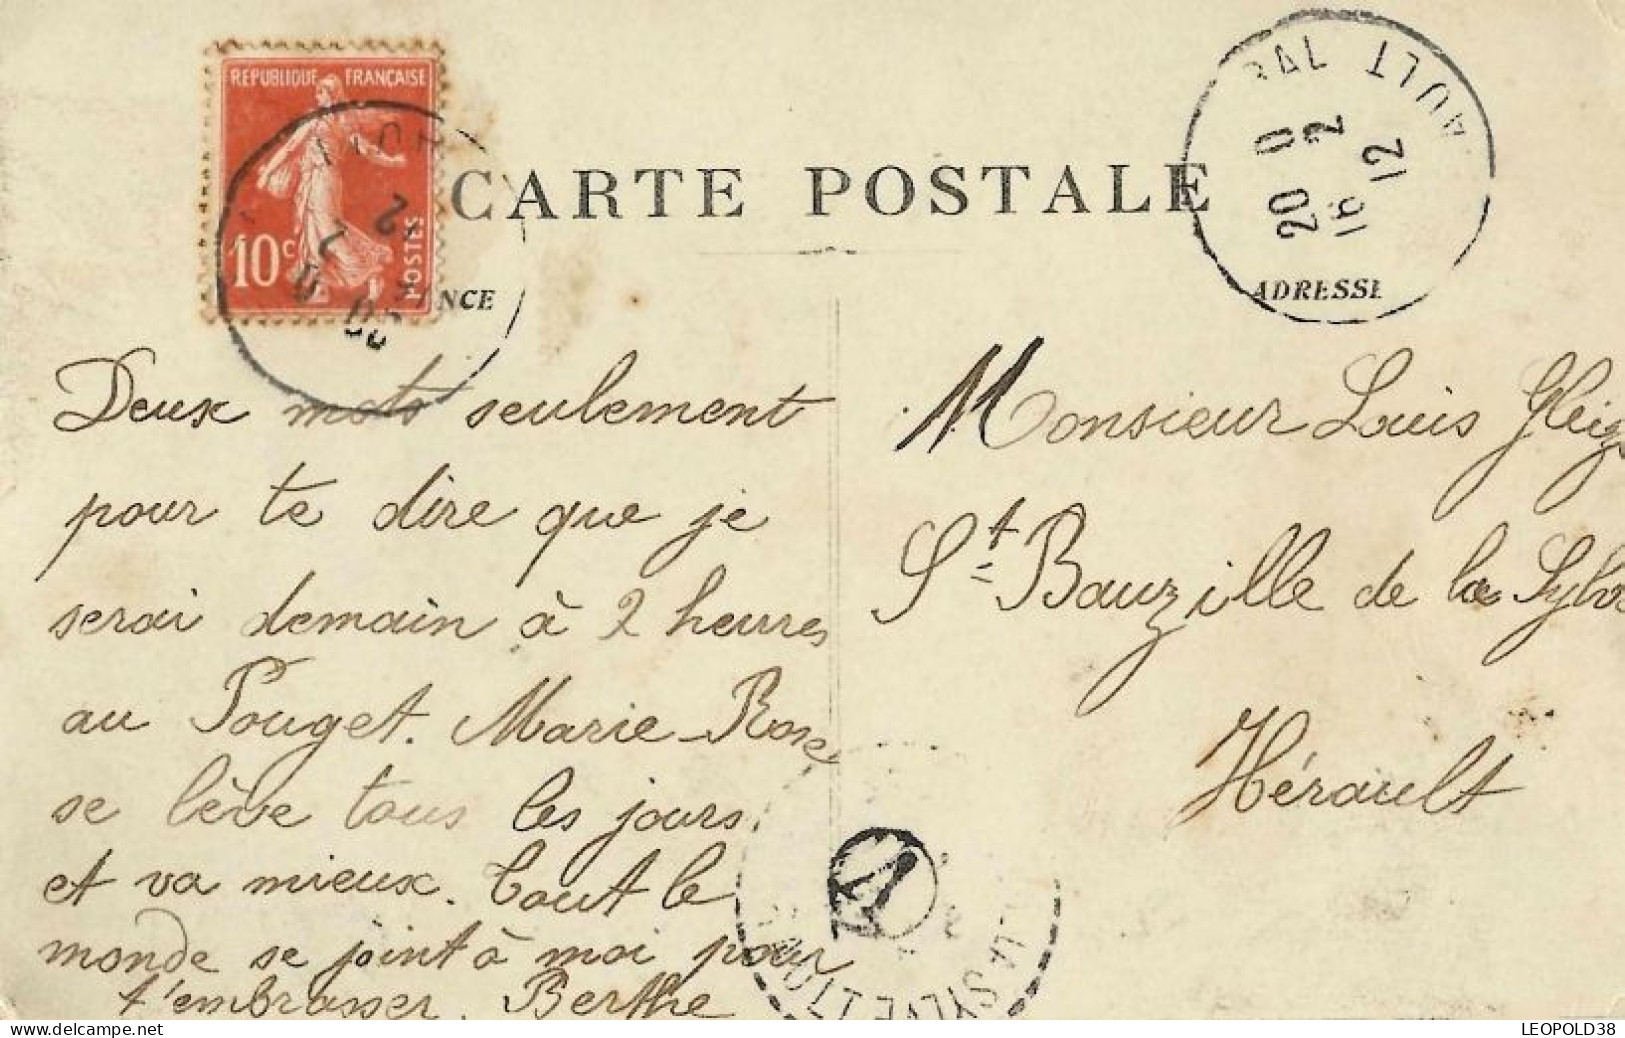 REPUBLIQUE FRANÇAISE
10c
POSTES
CARTE POSTALE
NCE
ADRESSE
AULT
20 0
2
16 12
Deux mots seulement
pour te dire que je
serai demain à 2 heures
au Pouget. Marie-Rose
se lève tous les jours
et va mieux. Tout le
monde se joint à moi pour
t'embrasser. Berthe
Monsieur Louis Gleiz
St Bauzille de la Sylv
Hérault
LA SYLVE
LEOPOLD38